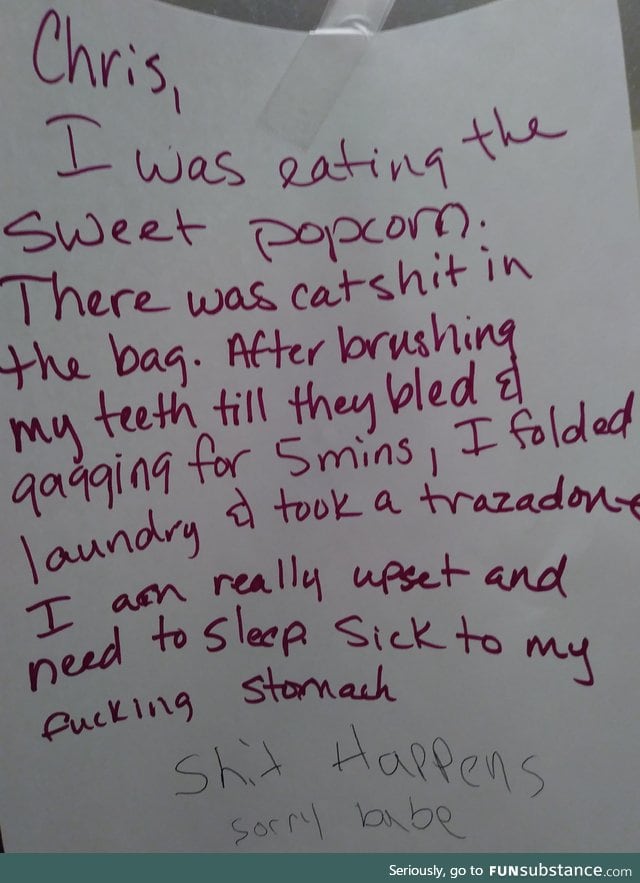 Chris,
I was eating the
sweet popcorn.
There was catshit in
the bag. After brushing
my teeth till they bled &
gagging for 5mins, I folded
laundry & took a trazadone
I am really upset and
need to sleep. Sick to my
fucking stomach
Shit Happens
sorry babe
Seriously, go to FUNsubstance.com